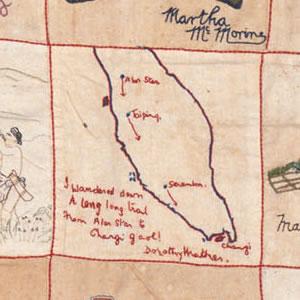 Martha
Mc Morine
Alor Star
Taiping
Seremban
Changi
I wandered down
A long long trail
From Alor Star to
Changi gaol!
Dorothy Mather.
Ma